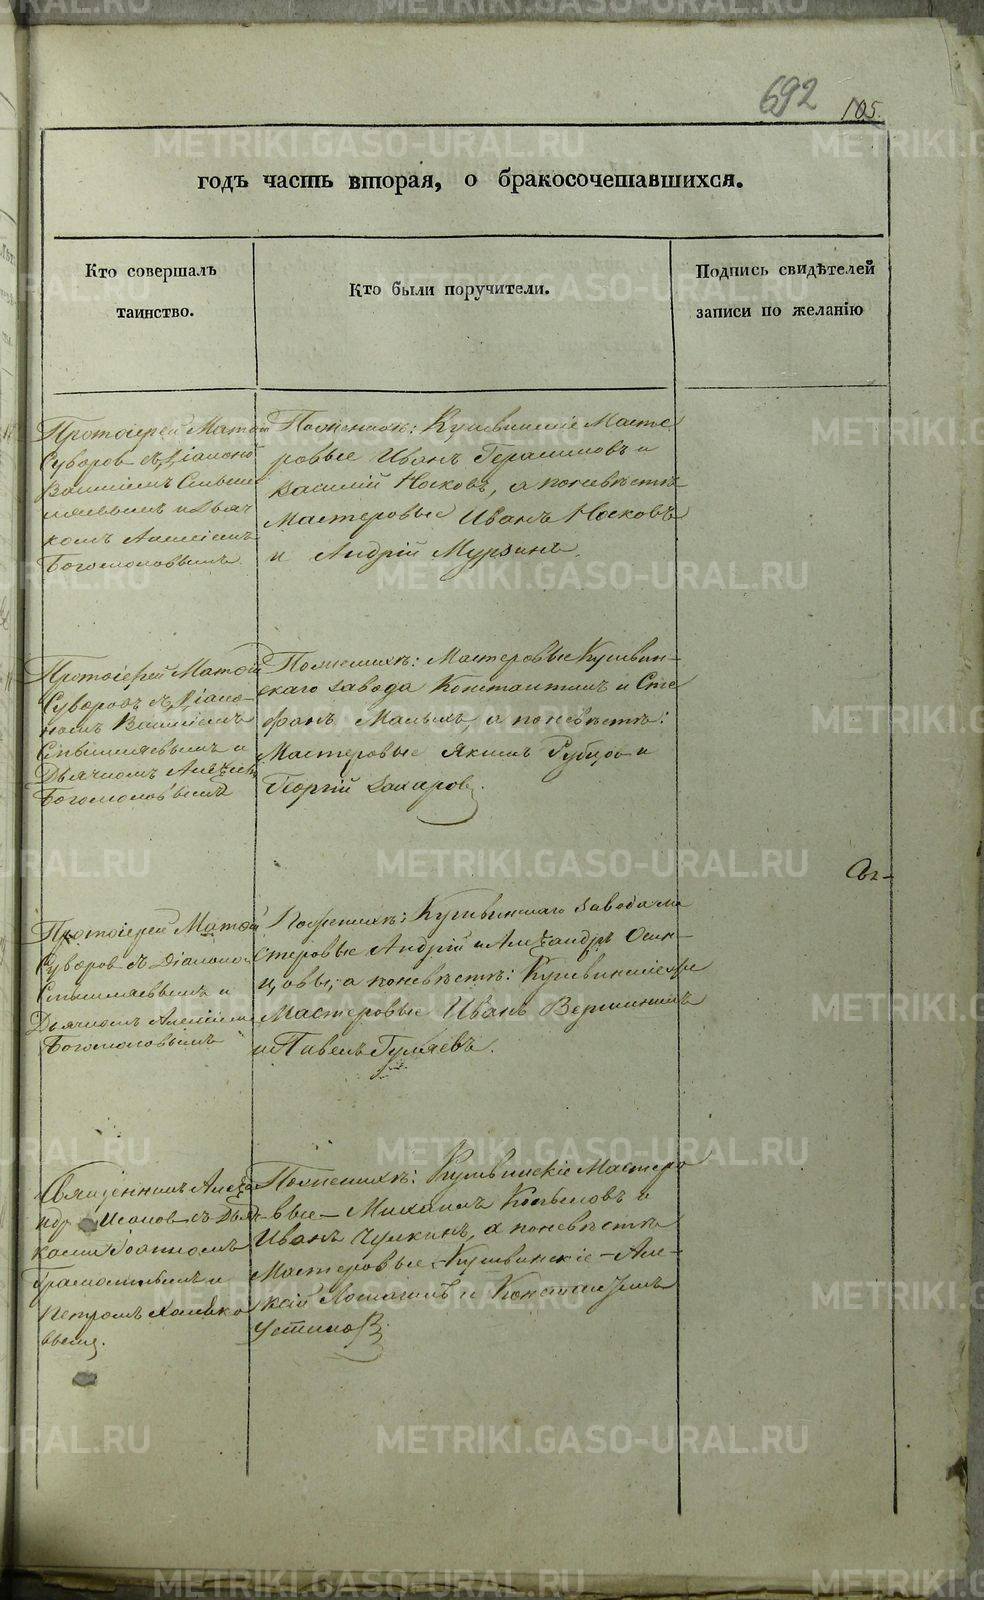 METRIKI.GASO-URAL.RU
692 105.
годъ часть вторая, о бракосочетавшихся.
Кто совершалъ
таинство.
Кто были поручители.
Подпись свидѣтелей
записи по желанію
Протоіерей Матѳій
Суворов съ Діакономъ
Василіемъ
и Дьяч
комъ Алексіемъ
Богомоловымъ
По женихѣ: Кушвинскіе Масте
ровые Иванъ Герасимовъ и
Василій Носковъ, а по невѣстѣ
Мастеровые Иванъ Носковъ
и Андрій Мурзинъ.
Протоіерей Матѳій
Суворовъ съ Діако-
номъ Василіемъ
и
Дьячкомъ Алексіемъ
Богомоловымъ
По женихѣ: Мастеровые Кушвин-
скаго завода Константинъ и Сте
фанъ Малыхъ, а по невѣстѣ:
Мастеровые Якимъ Рубцов и
Георгій Захаров.
Протоіерей Матѳій
Суворов съ Діакономъ
и
Дьячкомъ Алексіемъ
Богомоловымъ
По женихѣ: Кушвинскаго завода ма
стеровые Андрій и Александръ Осин-
цовы; а по невѣстѣ: Кушвинскіе же
Мастеровые Иванъ Вершининъ
и Павелъ Гуляевъ.
Съ-
Священникъ Алекса
ндр съ Дьяч-
ками Іоанномъ
и
Петромъ Хлынко
вымъ.
По женихѣ: Кушвинскіе Мастеро
вые – Михаилъ Копыловъ и
Иванъ Чуркинъ, а по невѣстѣ
Мастеровые Кушвинскіе – Але-
ксій и Константинъ
Устинов